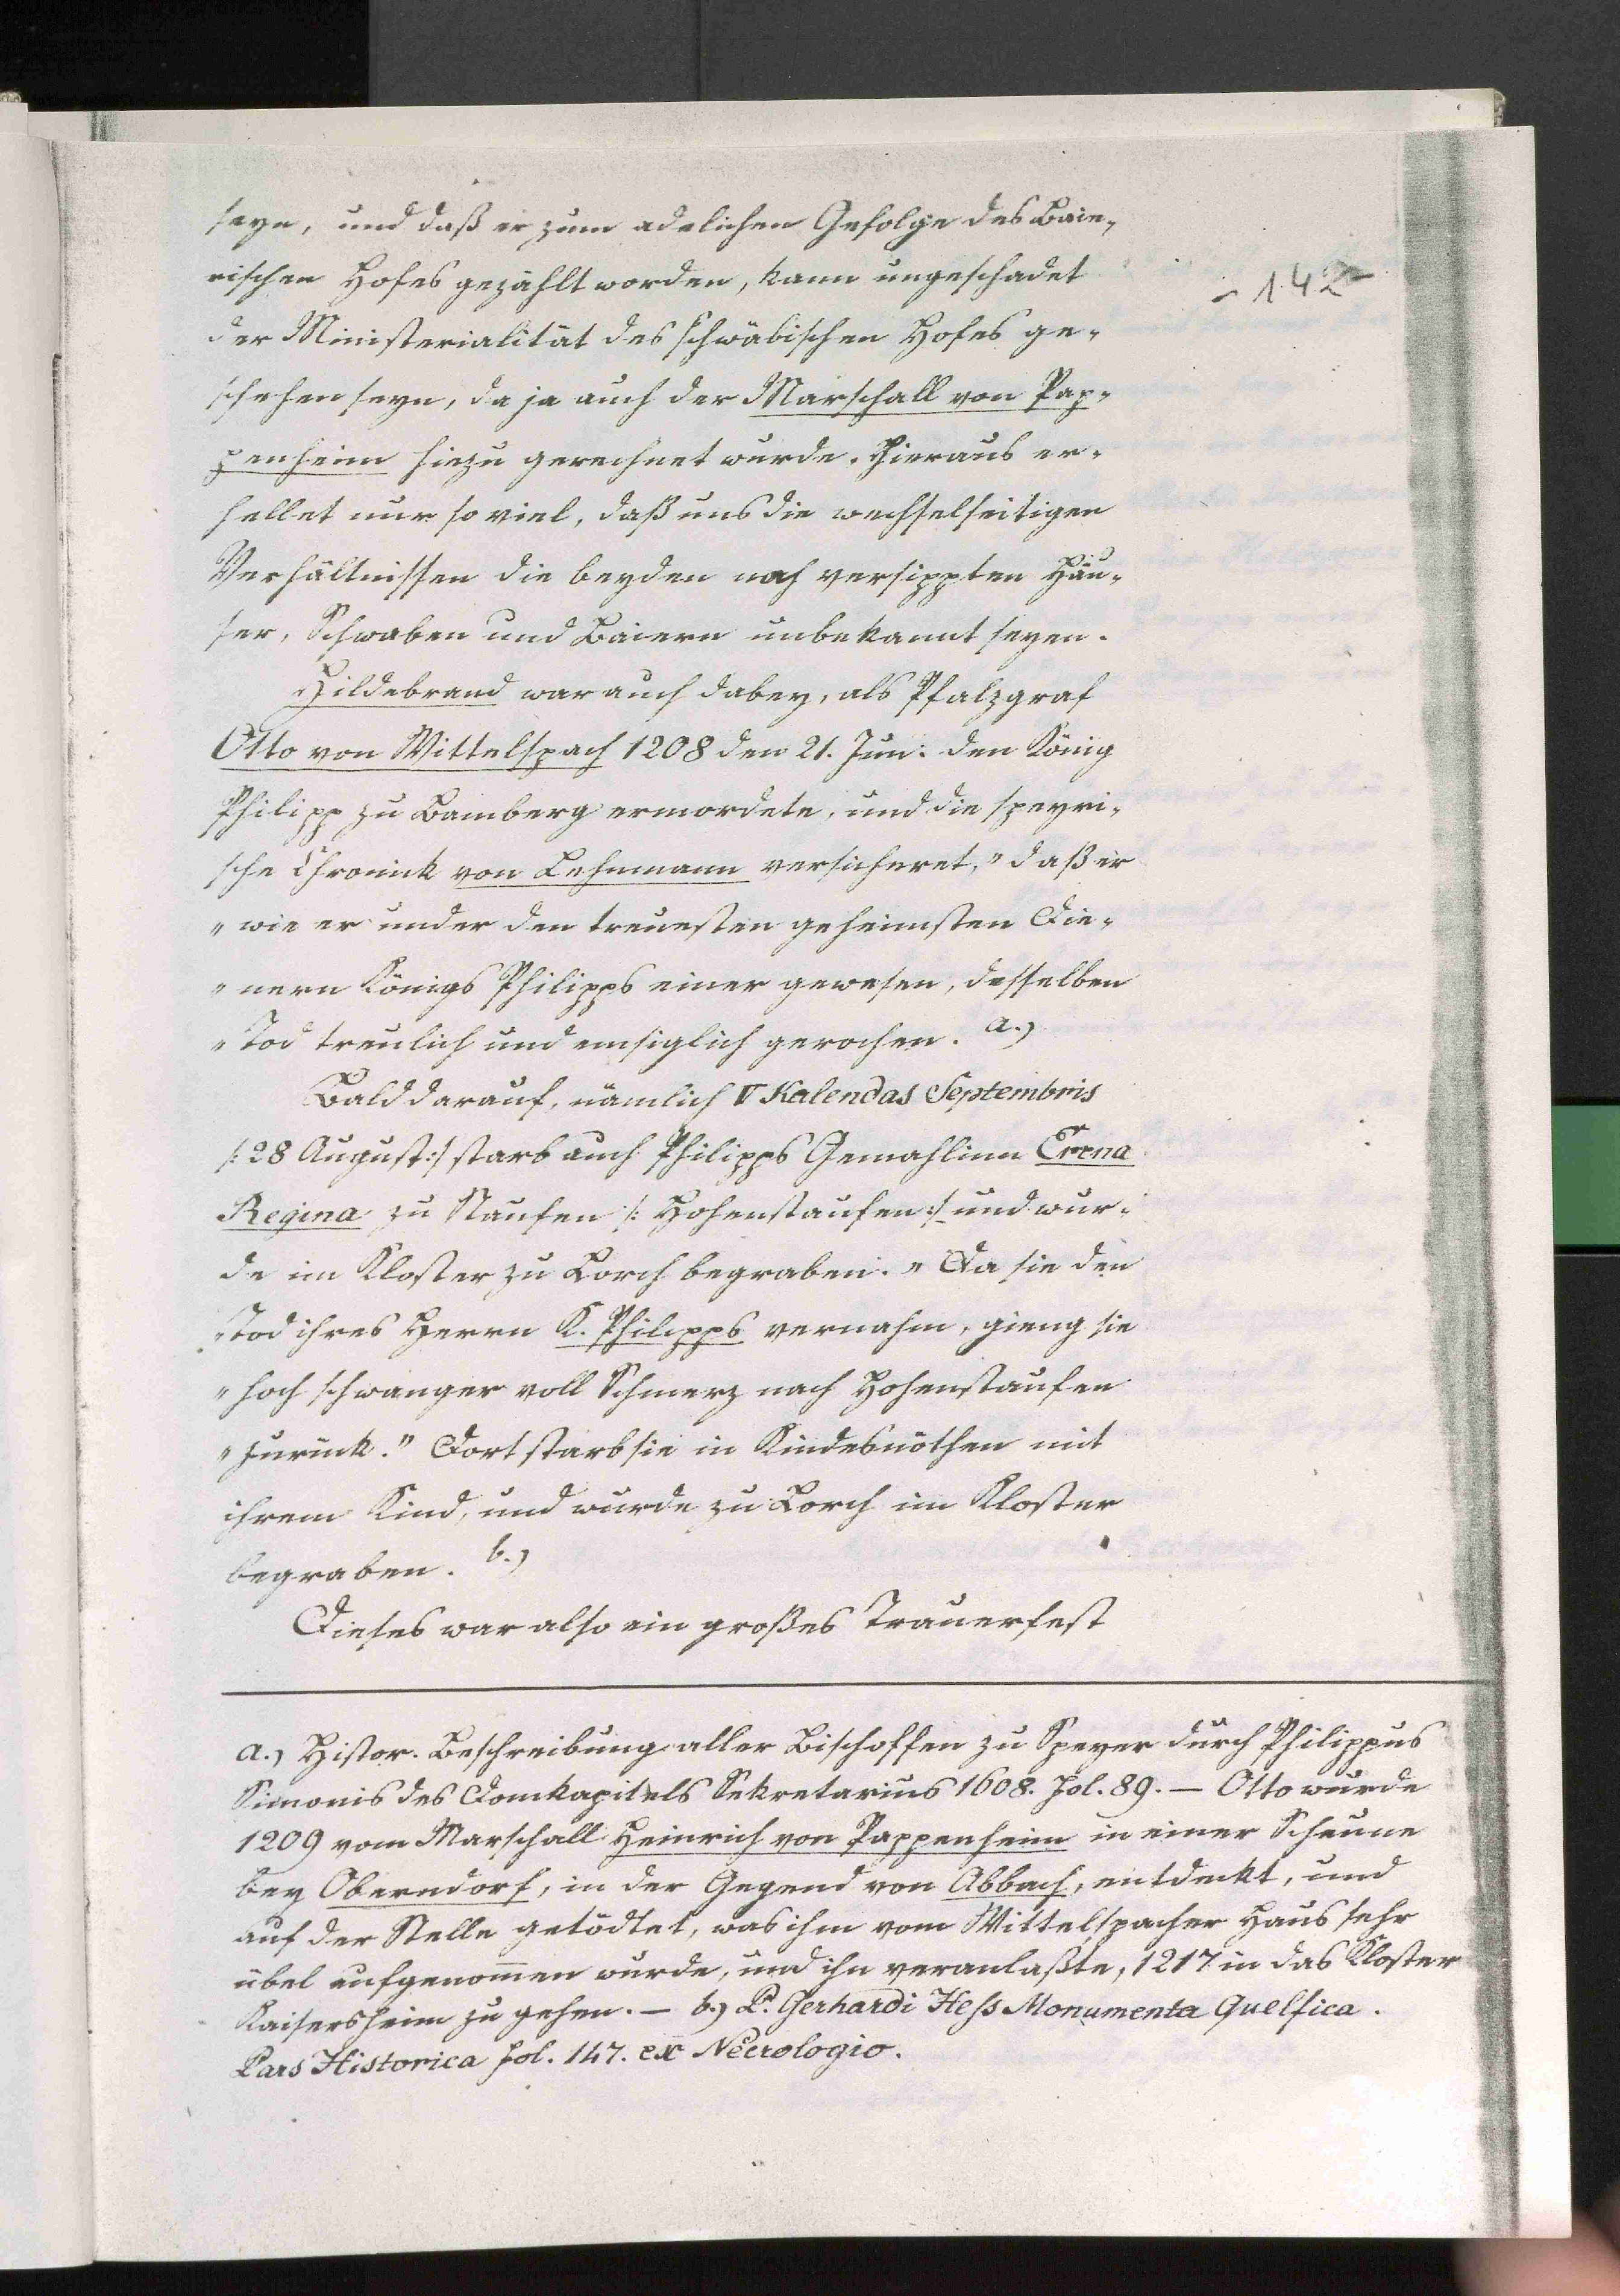 seyn, und daß er zum adelichen Gefolge des Baie-
rischen Hofes gezählt worden, kann ungeschadet
- 142 -
der Ministerialität des schwäbischen Hofes ge-
schehen seyn, da ja auch der Marschall von Pap-
penheim hiezu gerechnet wurde. Hieraus er-
hellet nur so viel, daß uns die wechselseitigen
Verhältnissen die beyden nah versippten Häu-
ser, Schwaben und Baiern unbekannt seyen.
Hildebrand war auch dabey, als Pfalzgraf
Otto von Wittelspach 1208 den 21. Jun. den König
Philipp zu Bamberg ermordete, und die speyri-
sche Chronick von Lehnmann versicheret, "daß er
"wie er under den treuesten geheimsten Die-
"nern Königs Philipps einer gewesen, desselben
"Tod treulich und emsiglich gerochen. a.)
Bald darauf, nämlich V Kalendas Septembris
/: 28 August :/ starb auch Philipps Gemahlinn Erena
Regina zu Staufen /: Hohenstaufen :/ und wur-
de im Kloster zu Lorch begraben. "Da sie den
"Tod ihres Herrn K. Philipps vernahm, gieng sie
"hoch schwanger voll Schmerz nach Hohenstaufen
"zurück." Dort starb sie in Kindesnöthen mit
ihrem Kind, und wurde zu Lorch im Kloster
begraben. b.)
Dieses war also ein großes Trauerfest
a.) Histor. Beschreibung aller Bischoffen zu Speyer durch Philippus
Simonis des Domkapitels Sekretarius 1608. fol. 89. — Otto wurde
1209 vom Marschall Heinrich von Pappenheim in einer Scheune
bey Oberndorf, in der Gegend von Abbach, entdeckt, und
auf der Stelle getödtet, was ihm vom Wittelspacher Haus sehr
übel aufgenom̄en wurde, und ihn veranlaßte, 1217 in das Kloster
Kaisersheim zu gehen. — b.) P. Gerhardi Hess Monumenta Guelfica.
Pars Historica fol. 147. ex Necrologio.